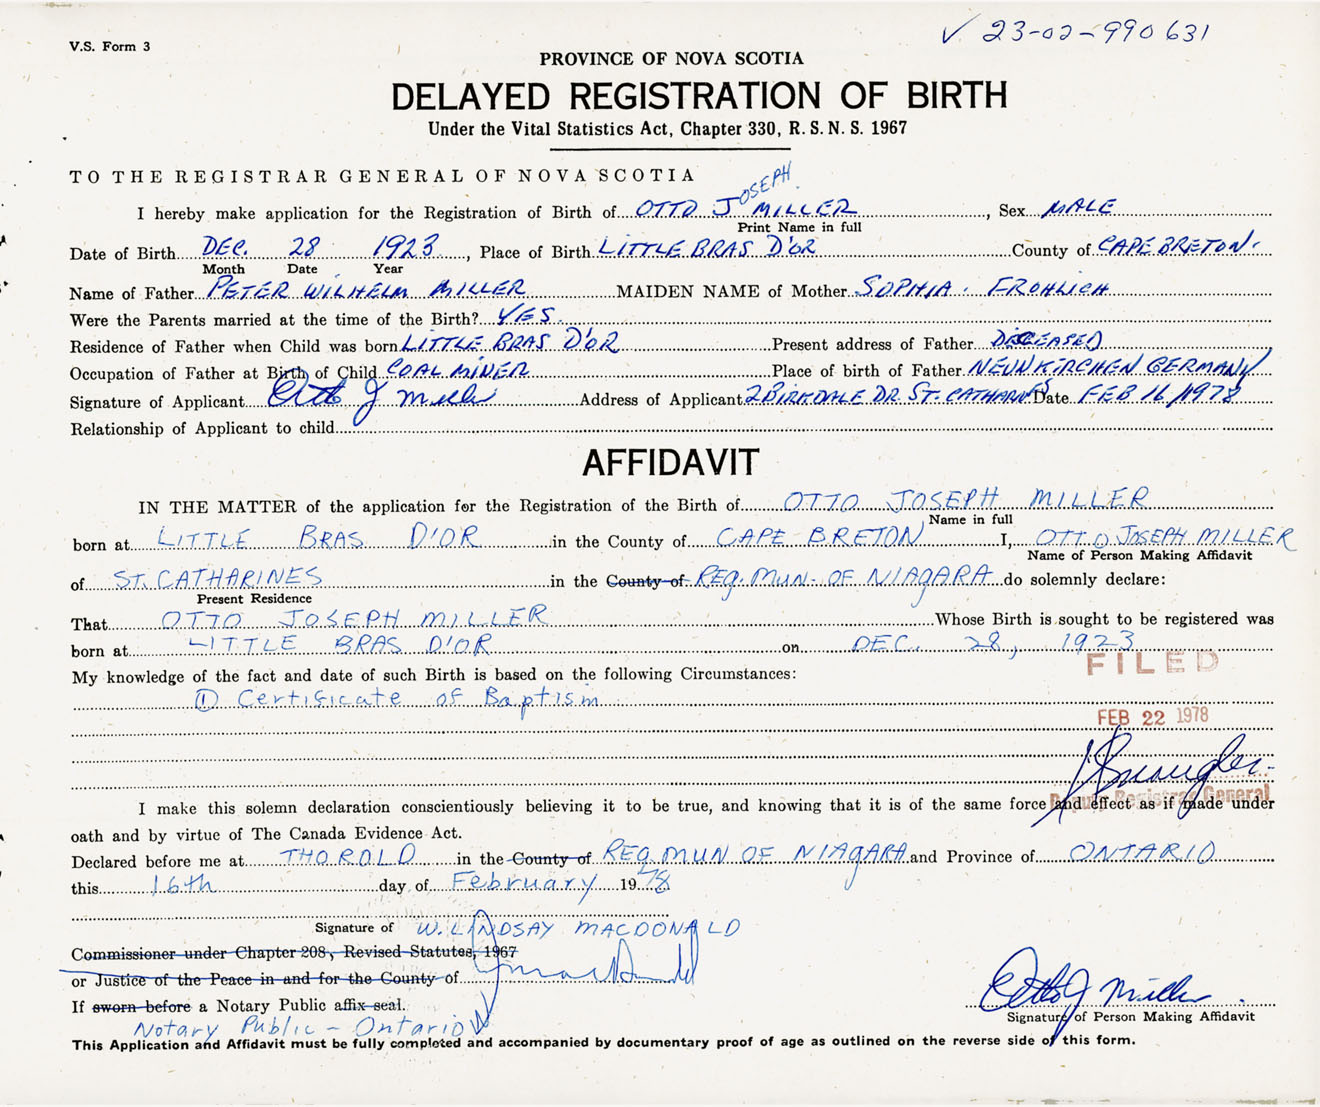 V.S. Form 3
✓ 23-02-990631
PROVINCE OF NOVA SCOTIA
DELAYED REGISTRATION OF BIRTH
Under the Vital Statistics Act, Chapter 330, R. S. N. S. 1967
TO THE REGISTRAR GENERAL OF NOVA SCOTIA
I hereby make application for the Registration of Birth of OTTO JOSEPH MILLER, Sex MALE
Print Name in full
Date of Birth DEC. 28 1923, Place of Birth LITTLE BRAS D'OR County of CAPE BRETON.
Month Date Year
Name of Father PETER WILHELM MILLER MAIDEN NAME of Mother SOPHIA. FROHLICH
Were the Parents married at the time of the Birth? YES.
Residence of Father when Child was born LITTLE BRAS D'OR Present address of Father DECEASED
Occupation of Father at Birth of Child COAL MINER Place of birth of Father NEUNKIRCHEN GERMANY
Signature of Applicant Otto J Miller Address of Applicant 2 BIRKDALE DR. ST. CATHARINES Date FEB 16/1978
Relationship of Applicant to child
AFFIDAVIT
IN THE MATTER of the application for the Registration of the Birth of OTTO JOSEPH MILLER
Name in full
born at LITTLE BRAS D'OR in the County of CAPE BRETON I, OTTO JOSEPH MILLER
Name of Person Making Affidavit
of ST. CATHARINES in the County of REG. MUN. OF NIAGARA do solemnly declare:
Present Residence
That OTTO JOSEPH MILLER Whose Birth is sought to be registered was
born at LITTLE BRAS D'OR on DEC. 28, 1923
FILED
My knowledge of the fact and date of such Birth is based on the following Circumstances:
① Certificate of Baptism
FEB 22 1978
Deputy Registrar General
I make this solemn declaration conscientiously believing it to be true, and knowing that it is of the same force and effect as if made under
oath and by virtue of The Canada Evidence Act.
Declared before me at THOROLD in the County of REG. MUN OF NIAGARA and Province of ONTARIO
this 16th day of February 1978
Signature of W. LINDSAY MACDONALD
Commissioner under Chapter 208, Revised Statutes, 1967
or Justice of the Peace in and for the County of
If sworn before a Notary Public affix seal.
Notary Public - Ontario
Otto J Miller
Signature of Person Making Affidavit
This Application and Affidavit must be fully completed and accompanied by documentary proof of age as outlined on the reverse side of this form.